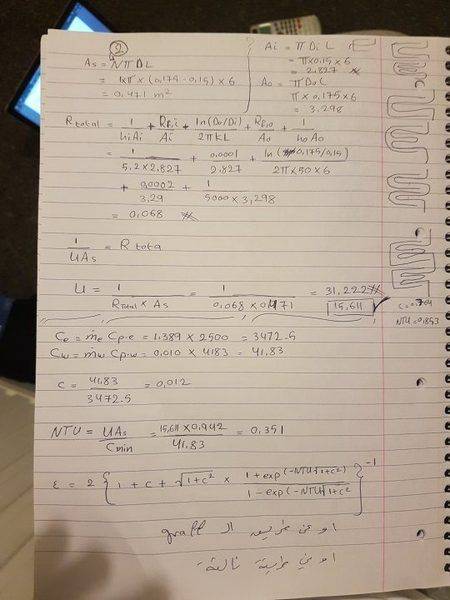 2
As = NπDL
= 1×π × (0,174 - 0,15) × 6
= 0,471 m²
Ai = π Di L
= π×0,15 × 6
= 2,827
Ao = π Do L
π × 0,175 × 6
= 3,298
Rtotal = 1/(hiAi) + Rf,i/Ai + ln(Do/Di)/(2πKL) + Rf,o/Ao + 1/(hoAo)
= 1/(5,2 × 2,827) + 0,0001/2,827 + ln(0,175/0,15)/(2π×50×6)
+ 0,0002/3,29 + 1/(5000 × 3,298)
= 0,068
1/(UAs) = R tota
U = 1/(RTotal × As) = 1/(0,068 × 0,471) = 31,222
15,611
C=0,704
NTU=0,1853
Ce = ṁe Cp.e = 1,389 × 2500 = 3472.5
Cw = ṁw Cp.w = 0,010 × 4183 = 41,83
C = 41,83/3472.5 = 0,012
NTU = UAs/Cmin = 15,611 × 0,942/41,83 = 0,351
ε = 2 { 1 + c + √(1+c²) × (1 + exp(-NTU√(1+c²)))/(1 - exp(-NTU√(1+c²))) }⁻¹
او عن طريق ال graff